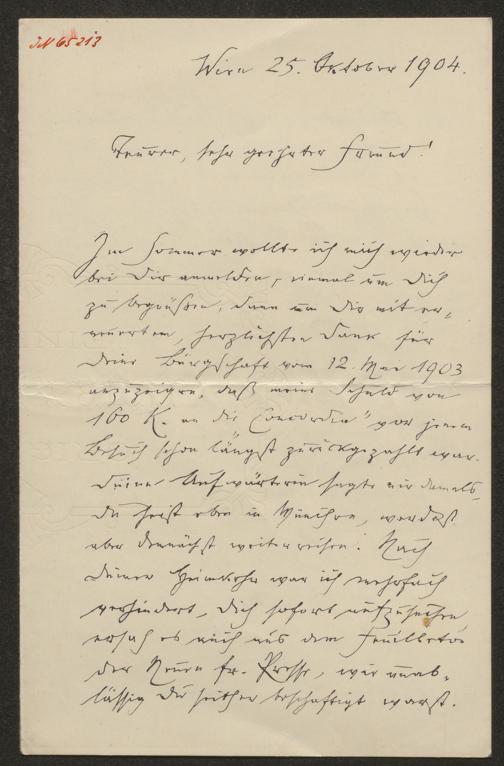 JN 65213
Wien 25. Oktober 1904.
Teurer, sehr geehrter Freund!
Im Sommer wollte ich mich wieder
bei Dir anmelden, einmal um Dich
zu begrüßen, dann um Dir mit er-
neuertem, herzlichsten Dank für
Deine Bürgschaft vom 12. Mai 1903
anzuzeigen, daß meine Schuld von
160 K. an die „Concordia" vor jenem
Besuch schon längst zurückgezahlt war.
Deine Aufwärterin sagte mir damals,
Du seist eben in München, werdest
aber demnächst weiterreisen. Nach
Deiner Heimkehr war ich mehrfach
verhindert, Dich sofort aufzusuchen,
ersah es auch aus dem Feuilleton
der Neuen fr. Presse, wie unab-
lässig Du seither beschäftigt warst.